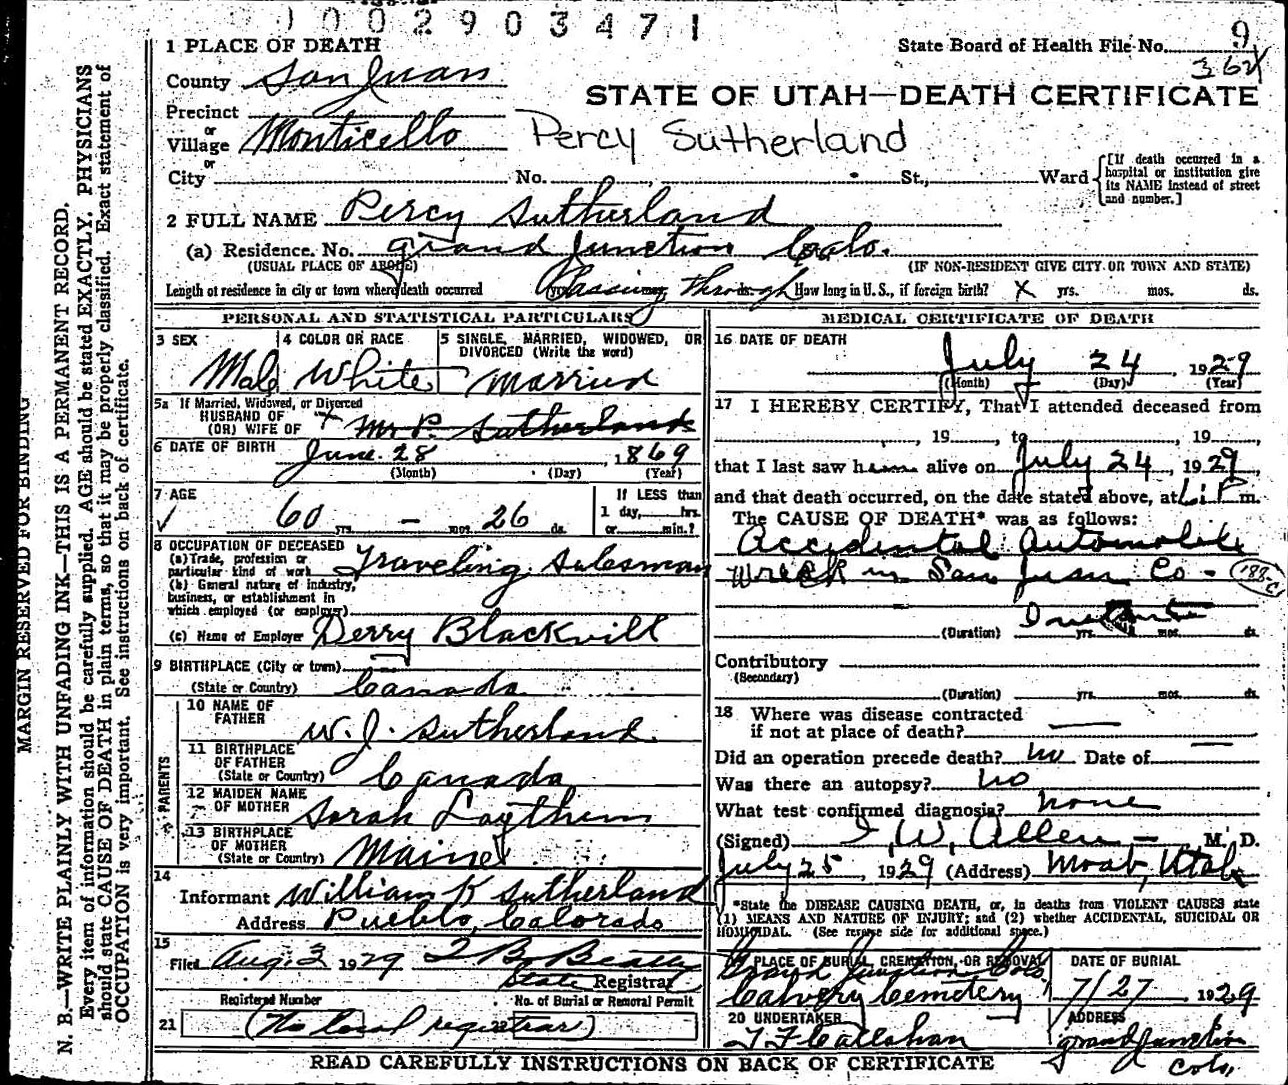 1002903471
1 PLACE OF DEATH
State Board of Health File No. 9
362
County San Juan
STATE OF UTAH—DEATH CERTIFICATE
Precinct
or
Village Monticello
Percy Sutherland
or
City No. St., Ward
[If death occurred in a hospital or institution give its NAME instead of street and number.]
2 FULL NAME Percy Sutherland
(a) Residence. No. Grand Junction Colo.
(USUAL PLACE OF ABODE) (IF NON-RESIDENT GIVE CITY OR TOWN AND STATE)
Length of residence in city or town where death occurred Passing through How long in U.S., if foreign birth? X yrs. mos. ds.
PERSONAL AND STATISTICAL PARTICULARS
3 SEX
Male
4 COLOR OR RACE
White
5 SINGLE, MARRIED, WIDOWED, OR DIVORCED (Write the word)
Married
5a If Married, Widowed, or Divorced
HUSBAND OF
(OR) WIFE OF X Mr P. Sutherland
6 DATE OF BIRTH June 28, 1869
(Month) (Day) (Year)
7 AGE
60 yrs. — mos. 26 ds.
If LESS than
1 day, hrs.
or min.?
8 OCCUPATION OF DECEASED
(a) Trade, profession or
particular kind of work Traveling Salesman
(b) General nature of industry,
business, or establishment in
which employed (or employer)
(c) Name of Employer Derry Blackvilt
9 BIRTHPLACE (City or town)
(State or Country) Canada
PARENTS
10 NAME OF
FATHER W. J. Sutherland
11 BIRTHPLACE
OF FATHER
(State or Country) Canada
12 MAIDEN NAME
OF MOTHER Sarah
13 BIRTHPLACE
OF MOTHER
(State or Country) Maine
14
Informant William K Sutherland
Address Pueblo, Colorado
15
Filed Aug. 3 1929
State Registrar
Registered Number No. of Burial or Removal Permit
21 (No local registrar)
MEDICAL CERTIFICATE OF DEATH
16 DATE OF DEATH
July 24, 1929
(Month) (Day) (Year)
17 I HEREBY CERTIFY, That I attended deceased from
, 19 , to , 19
that I last saw him alive on July 24, 1929,
and that death occurred, on the date stated above, at P m.
The CAUSE OF DEATH* was as follows:
Accidental Automobile
Wreck in San Juan Co - 188-C
(Duration) yrs. mos. ds.
Contributory
(Secondary)
(Duration) yrs. mos. ds.
18 Where was disease contracted
if not at place of death? —
Did an operation precede death? no Date of —
Was there an autopsy? no
What test confirmed diagnosis? none
(Signed) I. W. Allen — M. D.
July 25, 1929 (Address) Moab, Utah
*State the DISEASE CAUSING DEATH, or, in deaths from VIOLENT CAUSES state
(1) MEANS AND NATURE OF INJURY; and (2) whether ACCIDENTAL, SUICIDAL OR
HOMICIDAL. (See reverse side for additional space.)
PLACE OF BURIAL, CREMATION, OR REMOVAL
Grand Junction Colo
Calvery Cemetery
DATE OF BURIAL
7/27 1929
20 UNDERTAKER
Callahan
ADDRESS
Grand Junction
Colo.
READ CAREFULLY INSTRUCTIONS ON BACK OF CERTIFICATE
MARGIN RESERVED FOR BINDING
N. B.—WRITE PLAINLY WITH UNFADING INK—THIS IS A PERMANENT RECORD.
Every item of information should be carefully supplied. AGE should be stated EXACTLY. PHYSICIANS
should state CAUSE OF DEATH in plain terms, so that it may be properly classified. Exact statement of
OCCUPATION is very important. See instructions on back of certificate.